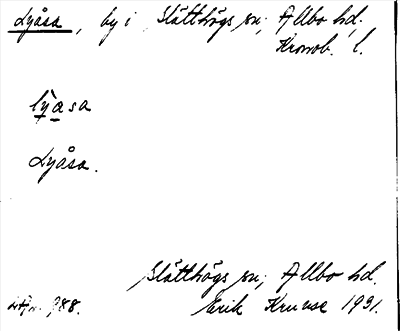 Lyåsa, by i Slätthögs sn, Allbo hd.
Kronob. l.
lỳasa
Lyåsa.
Slätthögs sn, Allbo hd.
988. Erik Kruuse 1931.